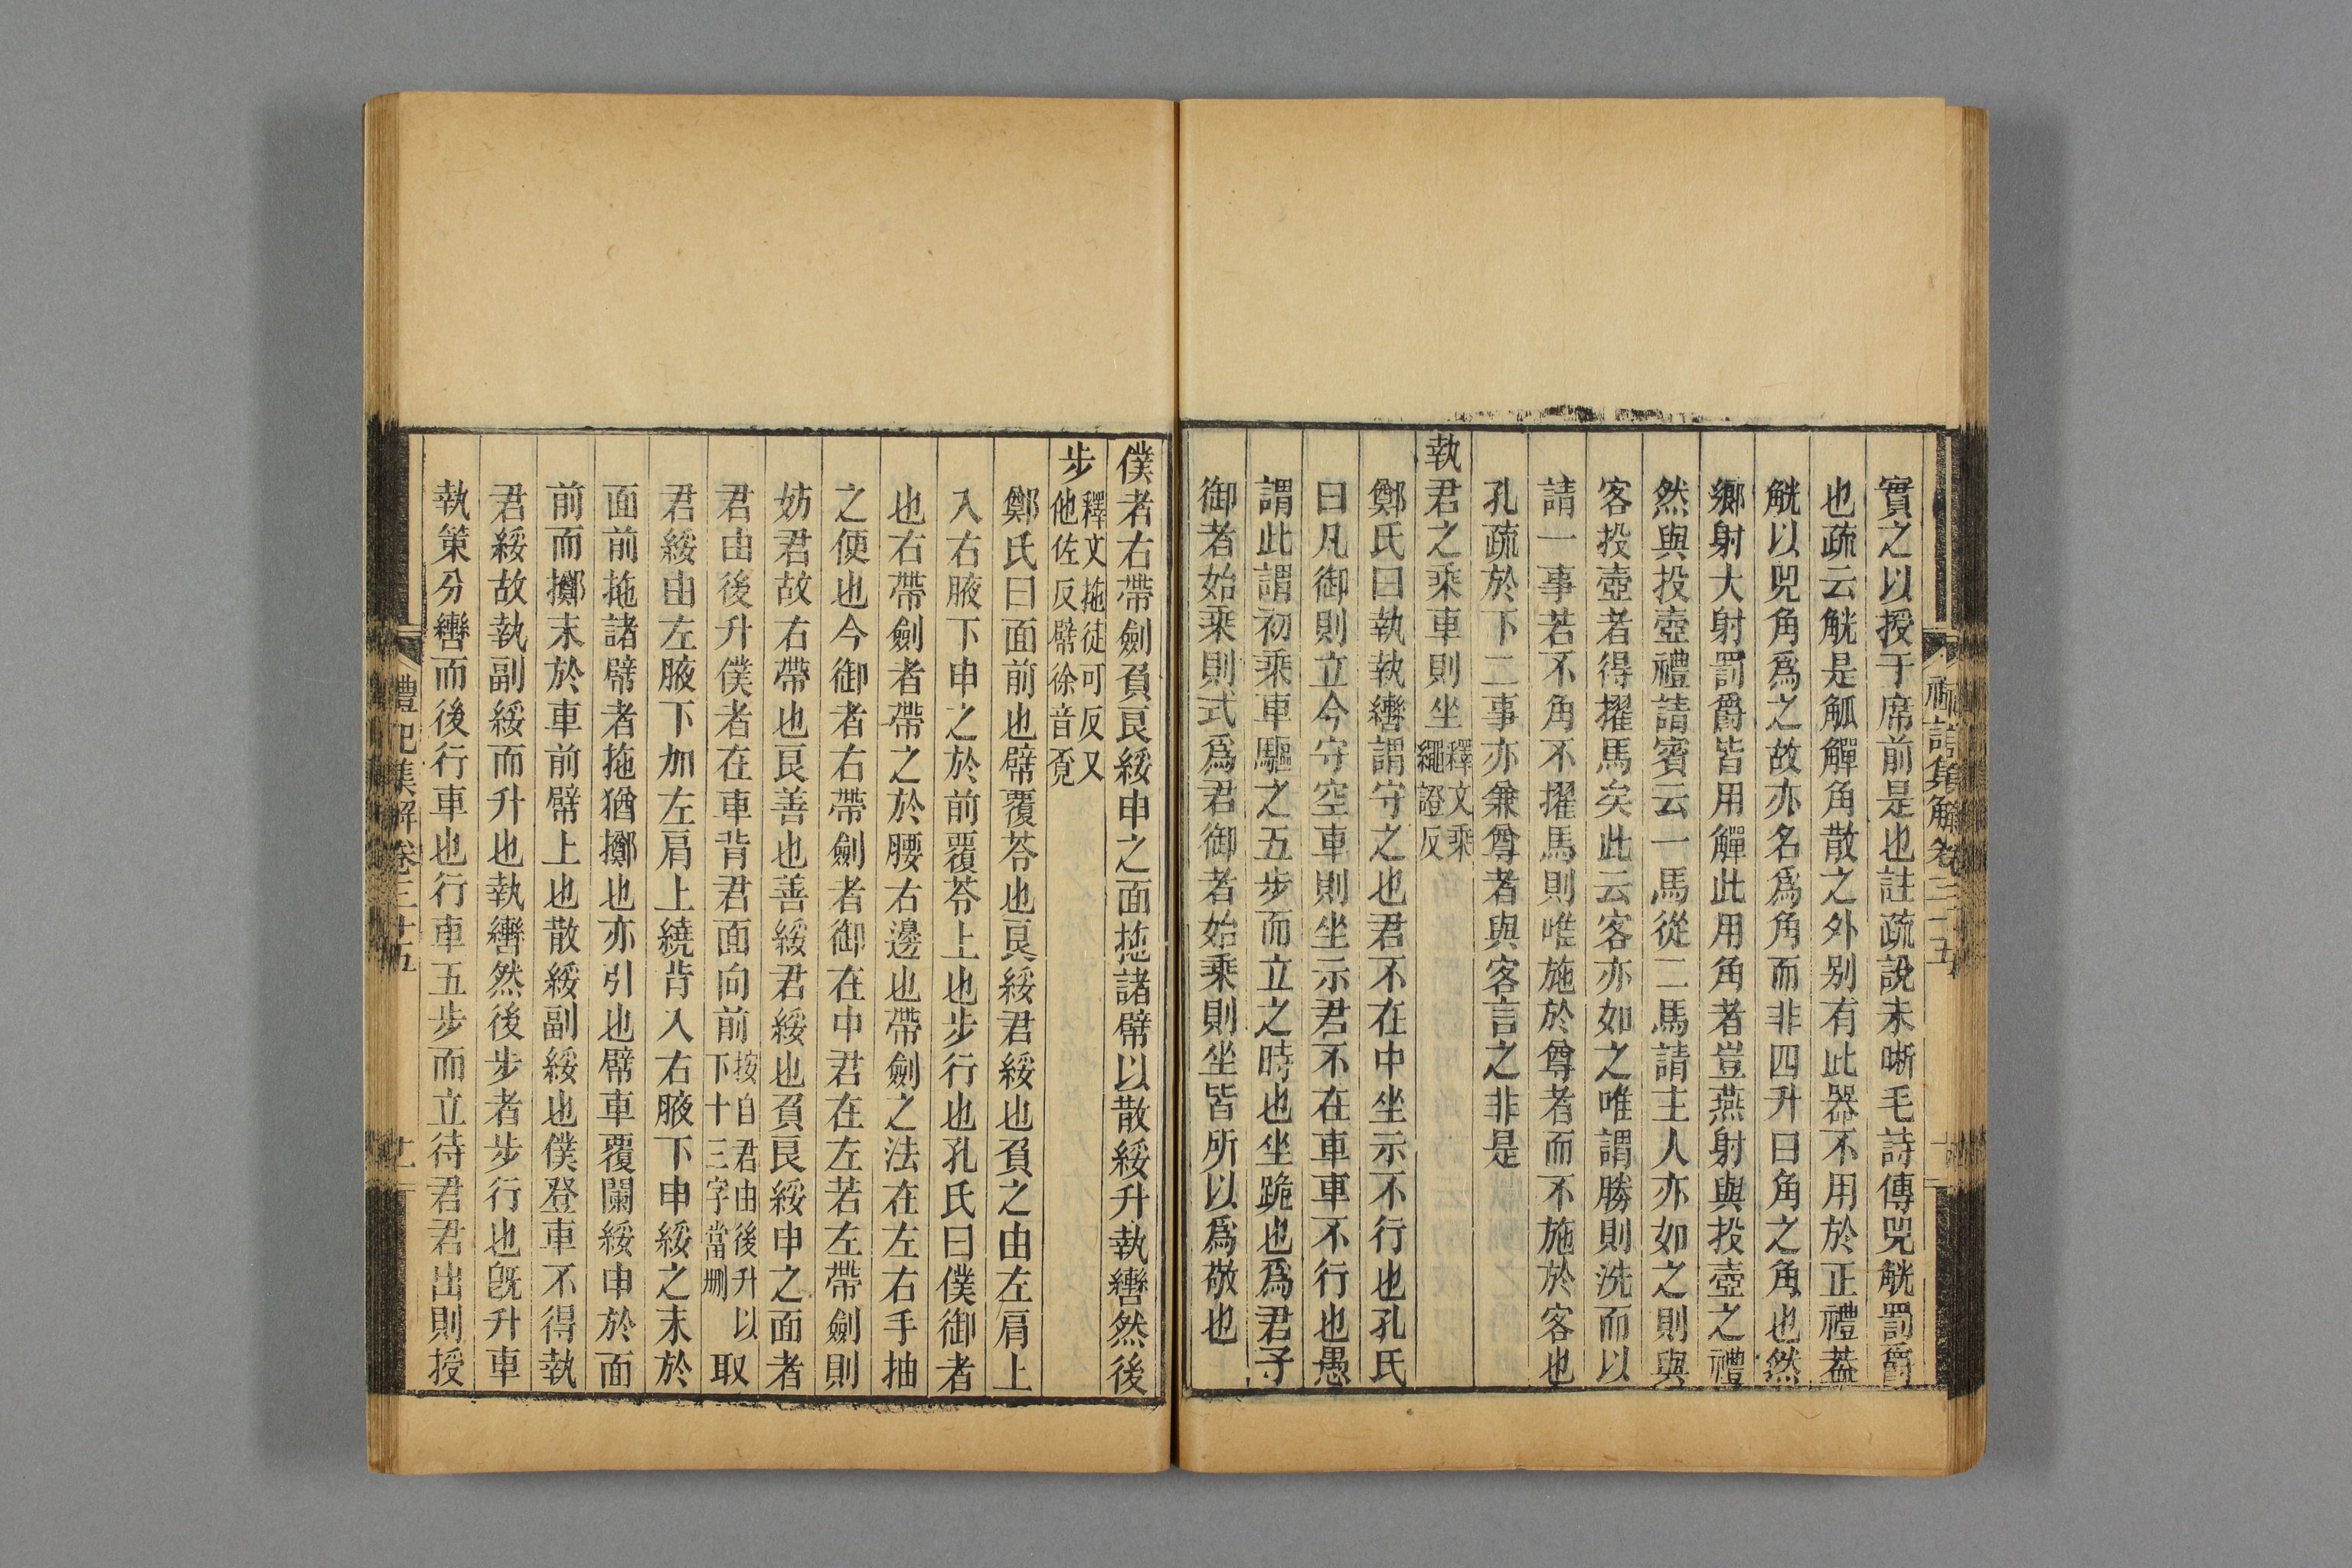 實之以授于席前是也註疏說未晰毛詩傳兕觥罰爵
也疏云觥是觚觶角散之外別有此器不用於正禮葢
觥以兕角爲之故亦名爲角而非四升曰角之角也然
鄉射大射罰爵皆用觶此用角者豈燕射與投壺之禮
然與投壺禮請賓云一馬從二馬請主人亦如之則與
客投壺者得擢馬矣此云客亦如之唯謂勝則洗而以
請一事若不角不擢馬則唯施於尊者而不施於客也
孔疏於下二事亦兼尊者與客言之非是
執君之乘車則坐釋文乘繩證反
鄭氏曰執執轡謂守之也君不在中坐示不行也孔氏
曰凡御則立今守空車則坐示君不在車車不行也愚
謂此謂初乘車驅之五步而立之時也坐跪也爲君子
御者始乘則式爲君御者始乘則坐皆所以爲敬也
僕者右帶劍負良綏申之面拖諸幦以散綏升執轡然後
步釋文拖徒可反又他佐反幦徐音覓
鄭氏曰面前也幦覆苓也良綏君綏也負之由左肩上
入右腋下申之於前覆苓上也步行也孔氏曰僕御者
也右帶劍者帶之於腰右邊也帶劍之法在左右手抽
之便也今御者右帶劍者御在中君在左若左帶劍則
妨君故右帶也良善也善綏君綏也負良綏申之面者
君由後升僕者在車背君面向前按自君由後升以下十三字當刪取
君綏由左腋下加左肩上繞背入右腋下申綏之末於
面前拖諸幦者拖猶擲也亦引也幦車覆闌綏申於面
前而擲末於車前幦上也散綏副綏也僕登車不得執
君綏故執副綏而升也執轡然後步者步行也旣升車
執策分轡而後行車也行車五步而立待君君出則授
禮記集解卷三十五